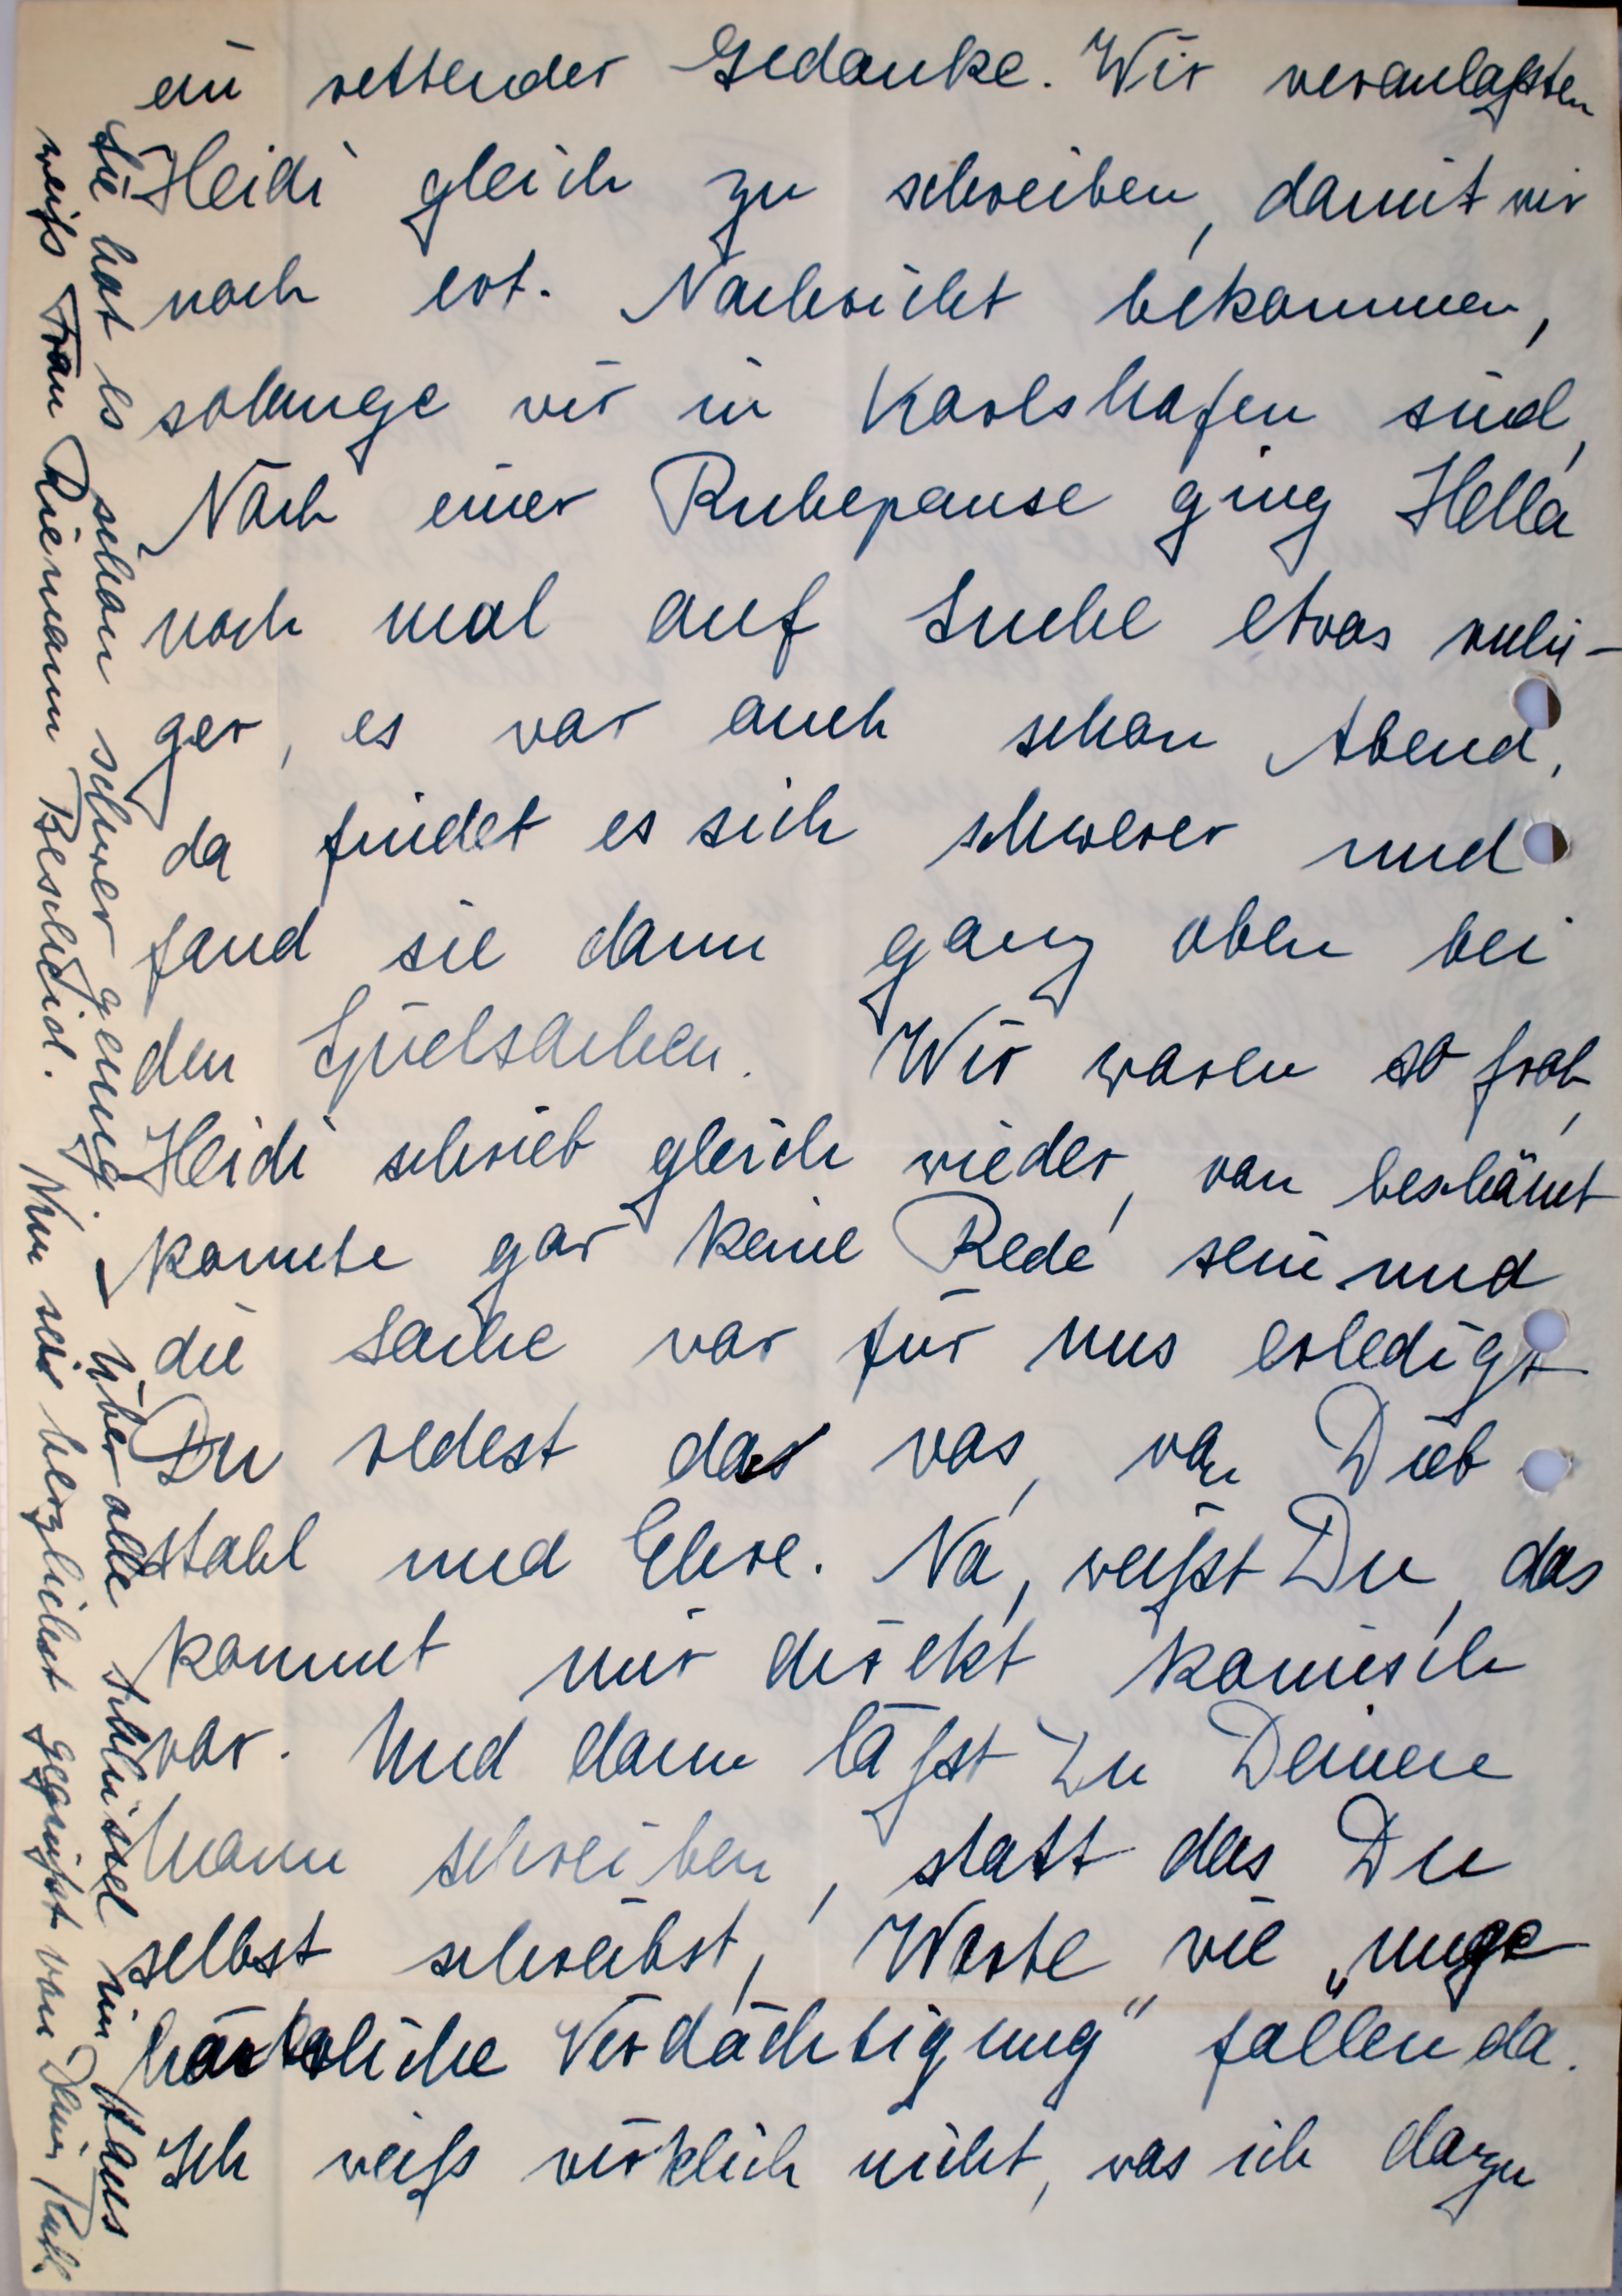 ein rettender Gedanke. Wir veranlaßten
Heidi gleich zu schreiben, damit wir
noch evt. Nachricht bekommen,
solange wir in Karlshafen sind,
Nach einer Ruhepause ging Hella
noch mal auf Suche etwas ruhi-
ger, es war auch schon Abend,
da findet es sich schwerer und
fand sie dann ganz oben bei
den Spielsachen. Wir waren so froh,
Heidi schrieb gleich wieder, von beschämt
konnte gar keine Rede sein und
die Sache war für uns erledigt
Du redest da was, von Dieb
stahl und Ehre. Na, weißt Du, das
kommt mir direkt komisch
vor. Und dann läßt Du Deinen
Mann schreiben, statt das Du
selbst schreibst, Worte wie „unge
liche Verdächtigung" fallen da.
Ich weiß wirklich nicht, was ich dazu
Sie hat es schon schwer genug. – Über alle Schlüssel im Haus
weiß Frau Riemann Bescheid. Nun sei herzlichst gegrüßt von Deiner